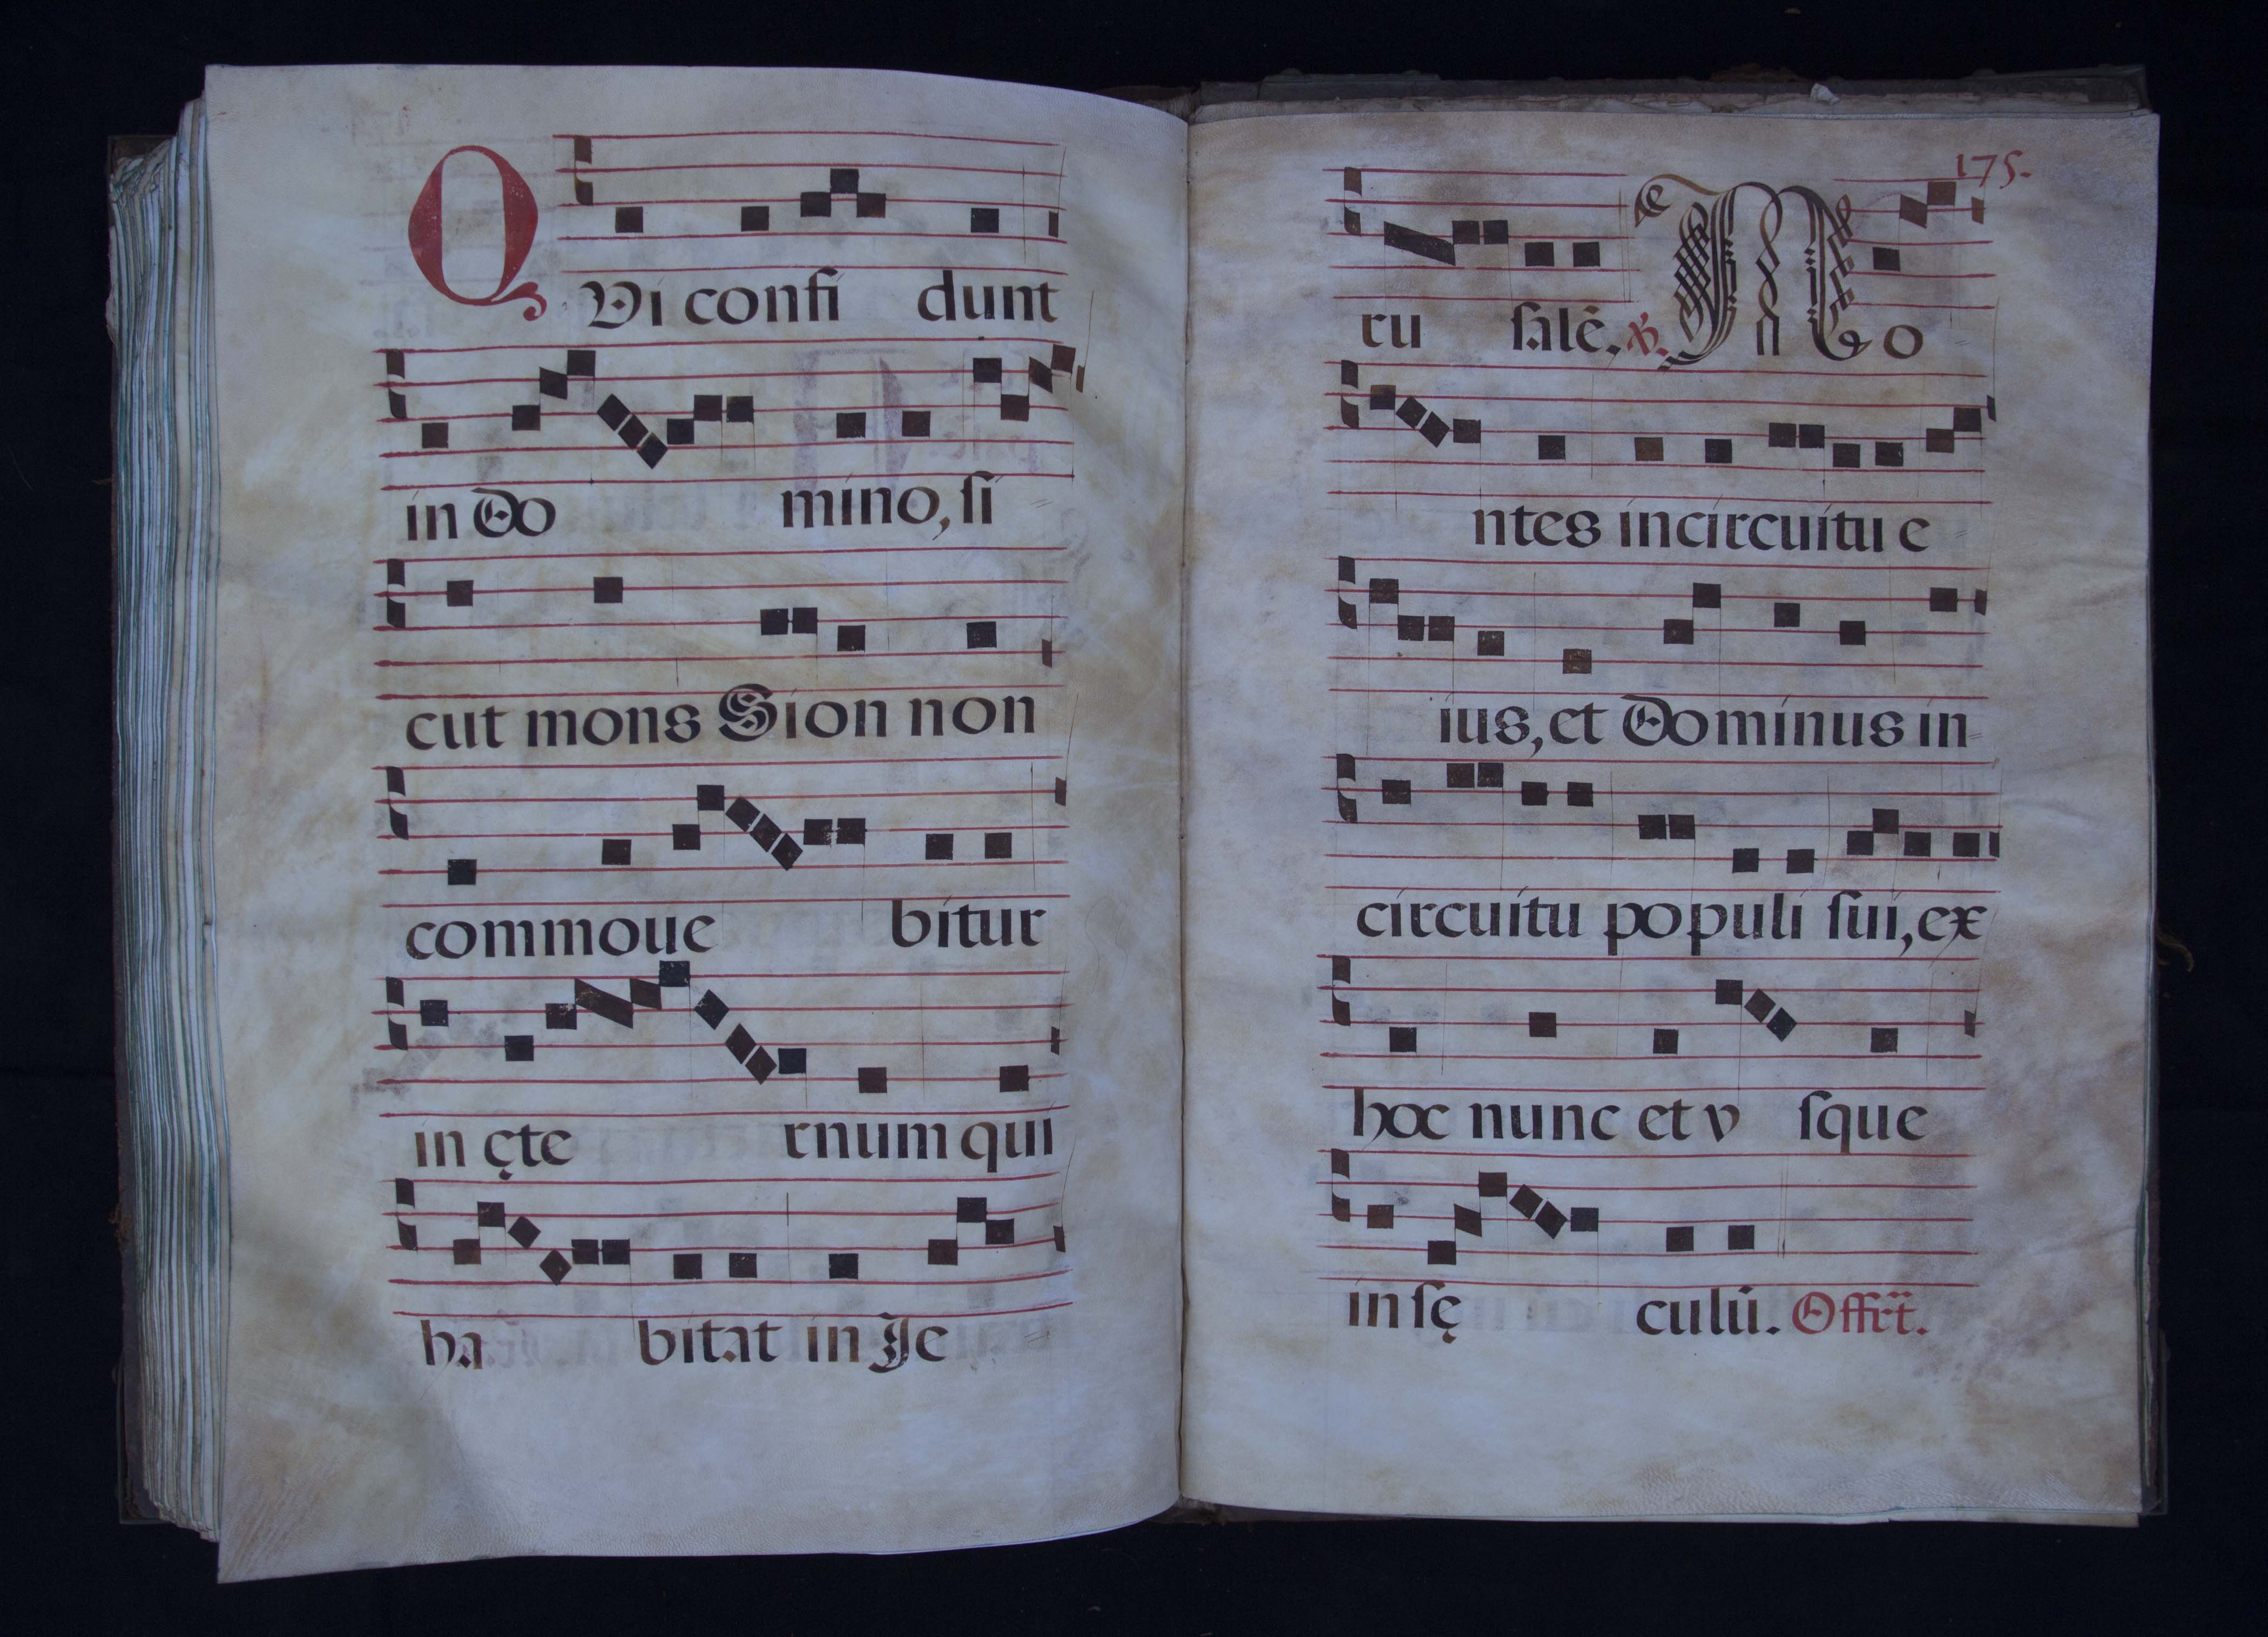 QVi confi dunt
in Do mino, si
cut mons Sion non
commoue bitur
in ęte rnum qui
ha bitat in Je
175.
ru salē. ℟. Mo
ntes in circuitu e
ius, et Dominus in
circuitu populi sui, ex
hoc nunc et v sque
in sę culū. Offrt̄.